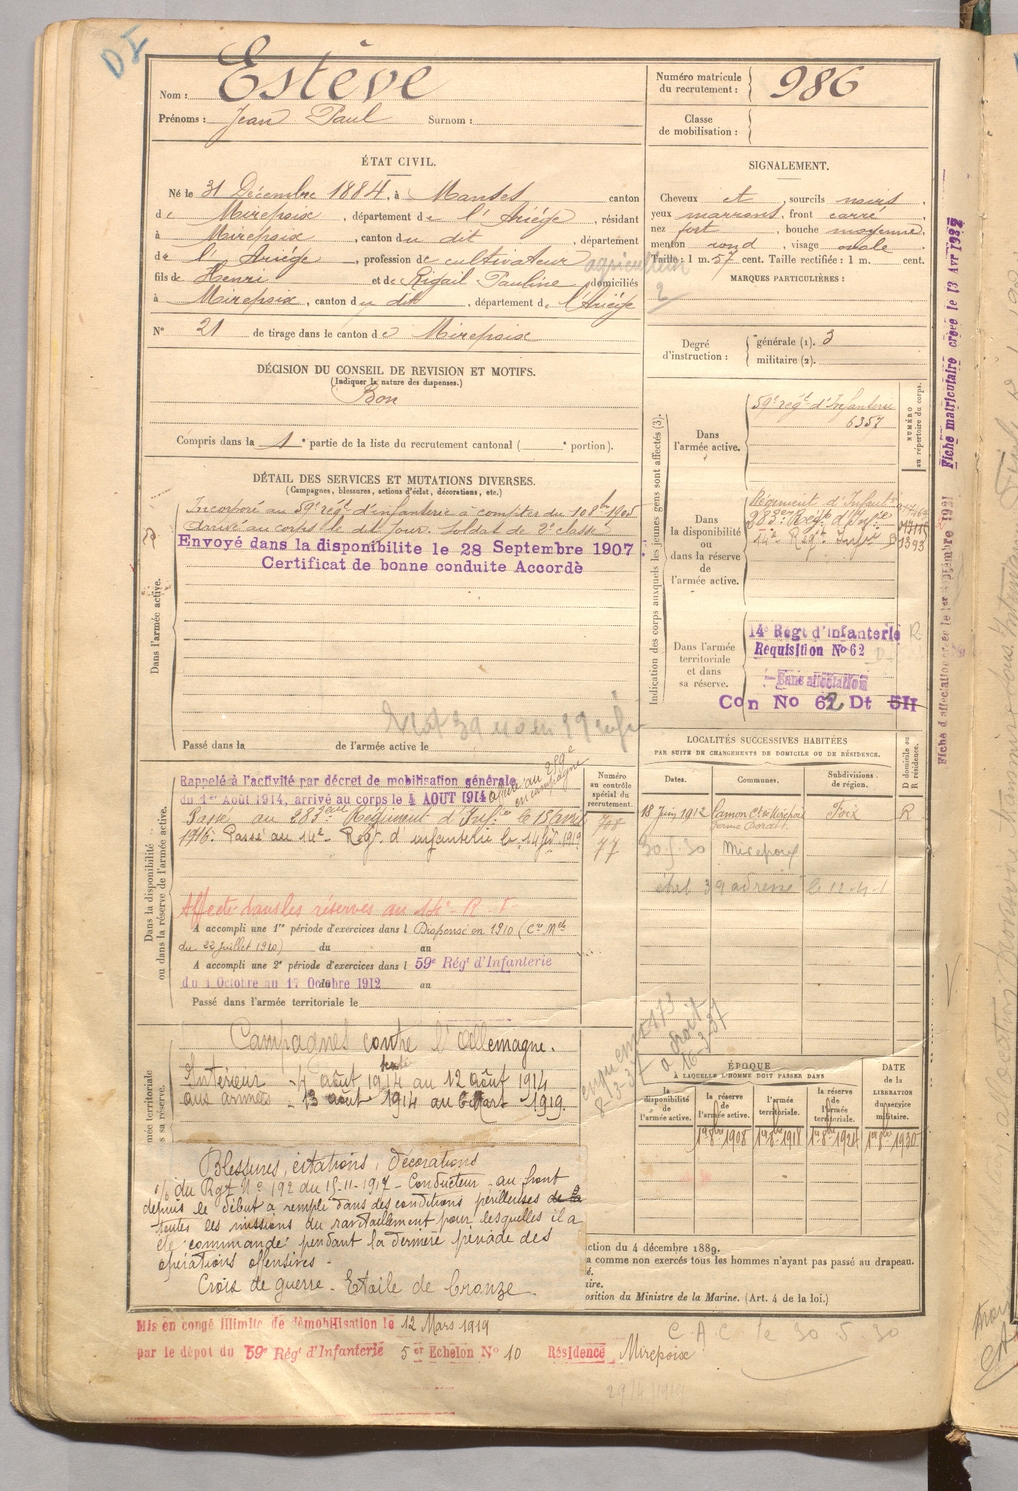 DI
Nom : Estève
Prénoms : Jean Paul Surnom :
Numéro matricule du recrutement : 986
Classe de mobilisation :
ÉTAT CIVIL.
Né le 31 Décembre 1884, à Manses canton
de Mirepoix, département de l'Ariège, résidant
à Mirepoix, canton du dit, département
de l'Ariège, profession de cultivateur agriculteur
fils de Henri et de Rigail Pauline, domiciliés
à Mirepoix, canton du dit, département de l'Ariège
N° 21 de tirage dans le canton de Mirepoix
SIGNALEMENT.
Cheveux et, sourcils noirs,
yeux marrons, front carré,
nez fort, bouche moyenne,
menton rond, visage ovale
Taille : 1 m. 57 cent. Taille rectifiée : 1 m. cent.
MARQUES PARTICULIÈRES :
2
Degré d'instruction : générale (1). 3
militaire (2).
DÉCISION DU CONSEIL DE REVISION ET MOTIFS.
(Indiquer la nature des dispenses.)
Bon
Compris dans la 1e partie de la liste du recrutement cantonal ( e portion).
DÉTAIL DES SERVICES ET MUTATIONS DIVERSES.
(Campagnes, blessures, actions d'éclat, décorations, etc.)
Dans l'armée active.
Incorporé au 59e régt d'infanterie à compter du 10 8bre 1905
Arrivé au corps le dit jour. Soldat de 2e classe
Envoyé dans la disponibilite le 28 Septembre 1907
Certificat de bonne conduite Accordé
Passé dans la de l'armée active le
Indication des corps auxquels les jeunes gens sont affectés (3).
NUMÉRO au répertoire du corps.
Dans l'armée active.
59e régt d'Infanterie
6357
Dans la disponibilité ou dans la réserve de l'armée active.
Régiment d'Infant
283eme Régt d'Infie
14e Régt Infie 1393
Dans l'armée territoriale et dans sa réserve.
14e Régt d'Infanterie R
Requisition No 62
Sans affectation
Con No 62 Dt 5H
Fiche matriculaire créée le 13 Avr 1932
Fiche d'affectation créée le 1er Septembre 1921
LOCALITÉS SUCCESSIVES HABITÉES
PAR SUITE DE CHANGEMENTS DE DOMICILE OU DE RÉSIDENCE.
Dates. Communes. Subdivisions de région. D domicile ou R résidence.
18 Juin 1912 Camon Cton Mirepoix Foix R
30-5-30 Mirepoix
Numéro au contrôle spécial du recrutement.
77
Dans la disponibilité ou dans la réserve de l'armée active.
Rappelé à l'activité par décret de mobilisation générale
du 1er Août 1914, arrivé au corps le 4 AOUT 1914
en campagne
Passé au 283eme Régiment d'Infie le 15 avril
1916. Passé au 14e Régt d'infanterie le 14 fév. 1919
Affecté dans les réserves au 14e R. I.
A accompli une 1re période d'exercices dans l Dispensé en 1910 (Cre Mlle
du 22 juillet 1910) du au
A accompli une 2e période d'exercices dans l 59e Régt d'Infanterie
du 1 Octobre au 17 Octobre 1912 au
Passé dans l'armée territoriale le
Campagnes contre l'Allemagne.
Intérieur 4 août 1914 au 12 août 1914
aux armées 13 août 1914 au 6 Mart 1919.
mée territoriale
s sa réserve.
8-3-37
a droit
16-3-37
ÉPOQUE
À LAQUELLE L'HOMME DOIT PASSER DANS
la disponibilité de l'armée active. la réserve de l'armée active. l'armée territoriale. la réserve de l'armée territoriale. DATE de la LIBÉRATION du service militaire.
1er 8bre 1908 1er 8bre 1918 1er 8bre 1924 1er 8bre 1930
Blessures, citations, décorations
o/ du Rgt N° 192 du 15-11-1917 - Conducteur au front
depuis le début a rempli dans des conditions périlleuses de la
toutes les missions du ravitaillement pour lesquelles il a
été commandé pendant la dernière période des
opérations offensives -
Croix de guerre - Etoile de bronze
ction du 4 décembre 1889.
a comme non exercés tous les hommes n'ayant pas passé au drapeau.
é.
ire.
osition du Ministre de la Marine. (Art. 4 de la loi.)
Mis en congé illimité de démobilisation le 12 Mars 1919
par le dépot du 59e Régt d'Infanterie 5e Echelon N° 10 Résidence Mirepoix
C.A.C. le 30.5.30